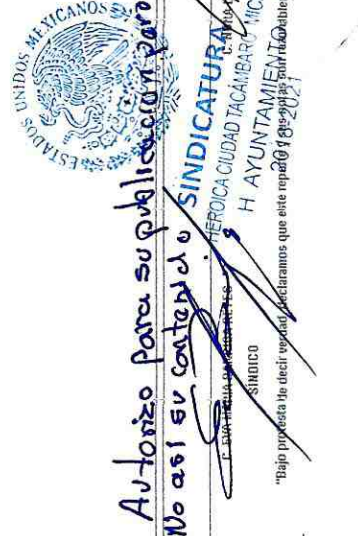 ESTADOS UNIDOS MEXICANOS
Autorizo para su publicación para
No así su contenido
SINDICATURA
HEROICA CIUDAD TACÁMBARO MIC
H AYUNTAMIENTO
2018-2021
C. EVA
SINDICO
"Bajo protesta de decir verdad, declaramos que este reporte y